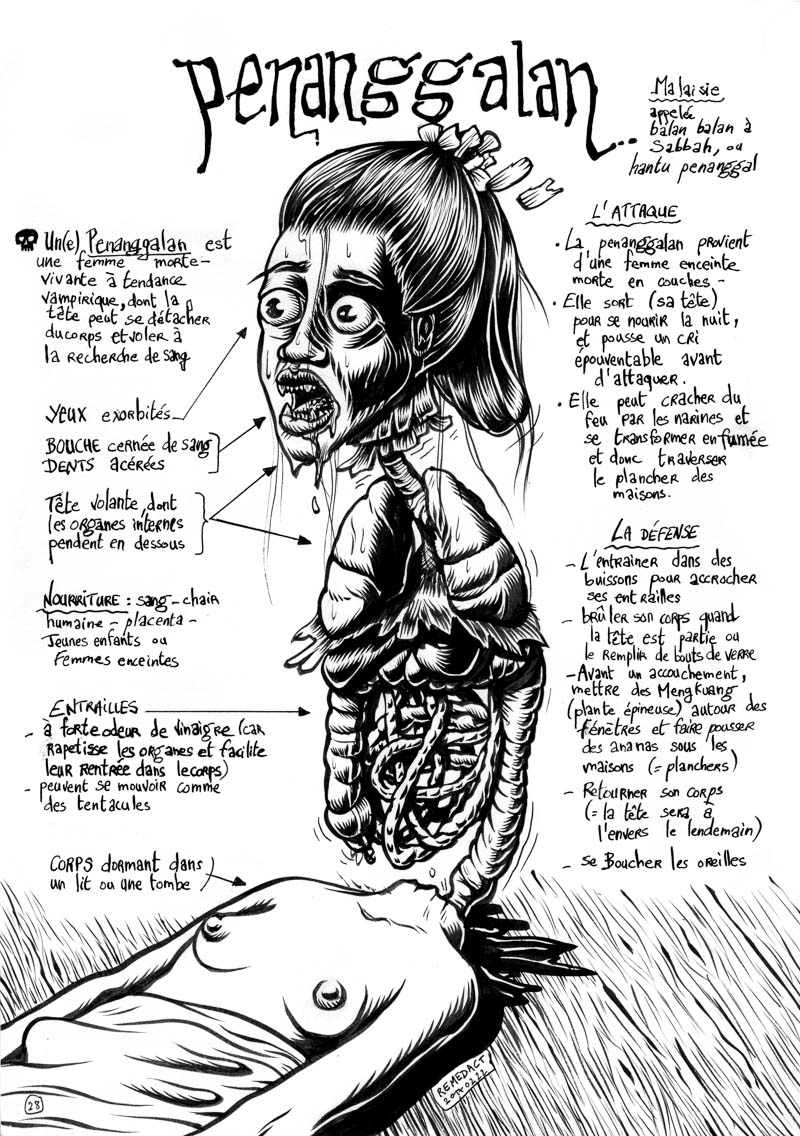 penanggalan...
Malaisie
appelée
balan balan à
Sabbah, ou
hantu penanggal
Un(e) Penanggalan est
une femme morte-
vivante à tendance
vampirique, dont la
tête peut se détacher
du corps et voler à
la recherche de sang
Yeux exorbités
BOUCHE cernée de sang
DENTS acérées
Tête volante, dont
les organes internes
pendent en dessous
NOURRITURE : sang - chair
humaine - placenta -
Jeunes enfants ou
Femmes enceintes
ENTRAILLES
- à forte odeur de vinaigre (car
rapetisse les organes et facilite
leur rentrée dans le corps)
- peuvent se mouvoir comme
des tentacules
CORPS dormant dans
un lit ou une tombe
L'ATTAQUE
• La penanggalan provient
d'une femme enceinte
morte en couches -
• Elle sort (sa tête)
pour se nourir la nuit,
et pousse un cri
épouventable avant
d'attaquer.
• Elle peut cracher du
feu par les narines et
se transformer en fumée
et donc traverser
le plancher des
maisons.
LA DÉFENSE
- L'entrainer dans des
buissons pour accrocher
ses entrailles
- brûler son corps quand
la tête est partie ou
le remplir de bouts de verre
- Avant un accouchement,
mettre des Mengkuang
(plante épineuse) autour des
fenêtres et faire pousser
des ananas sous les
maisons (= planchers)
- Retourner son corps
(= la tête sera à
l'envers le lendemain)
- se Boucher les oreilles
REMEDACT
28